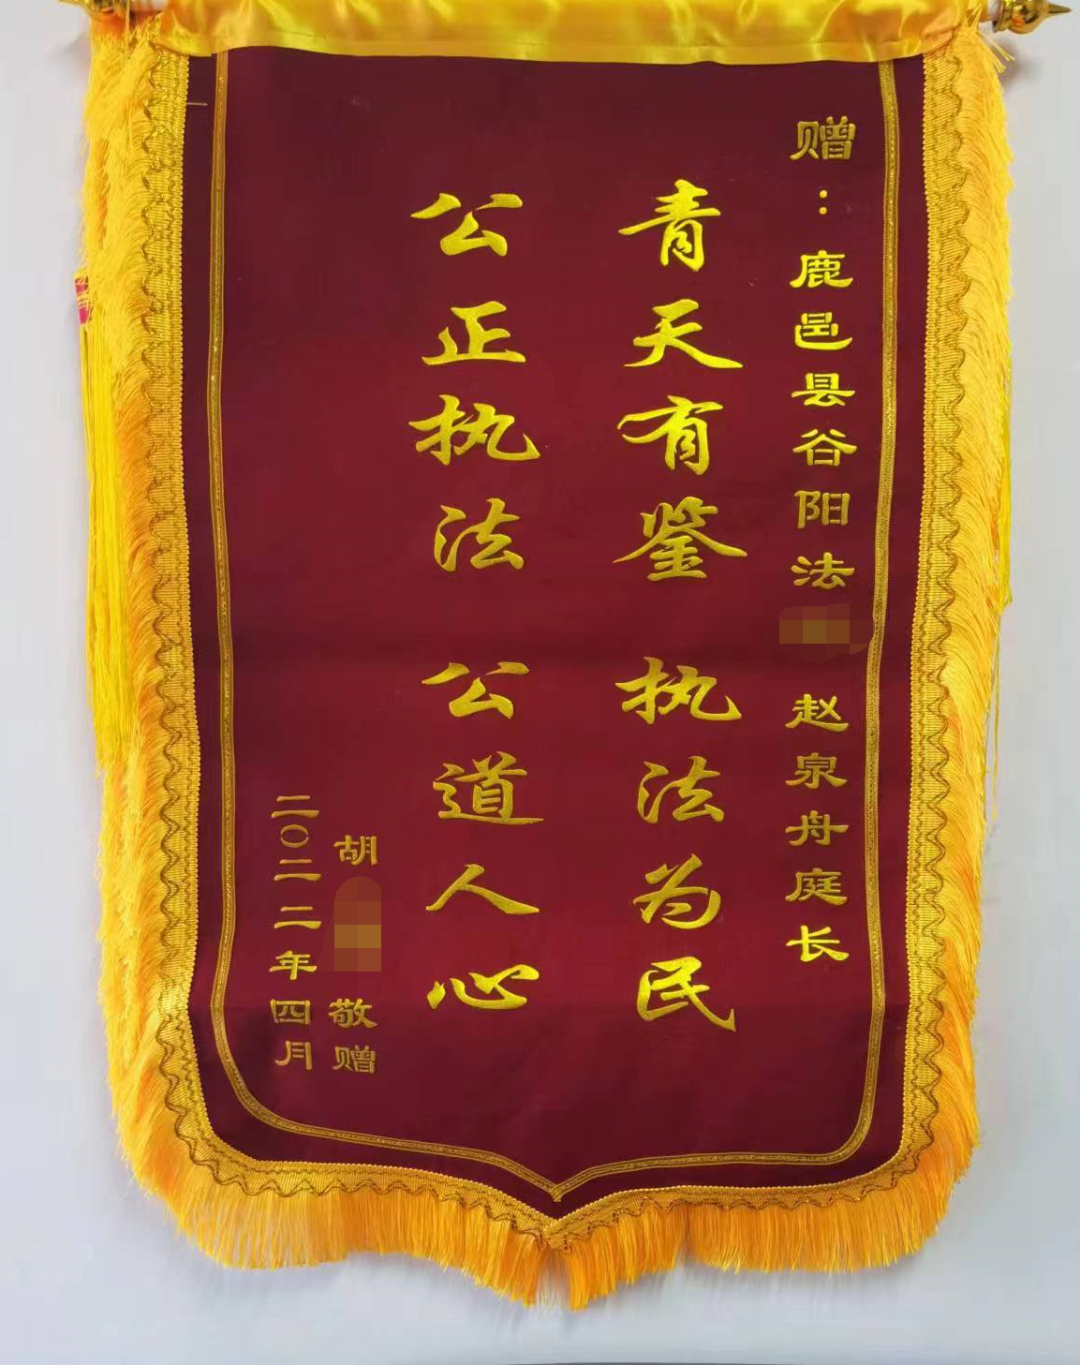 赠：鹿邑县谷阳法 赵泉舟庭长
青天有鉴 执法为民
公正执法 公道人心
胡 敬赠
二〇二二年四月